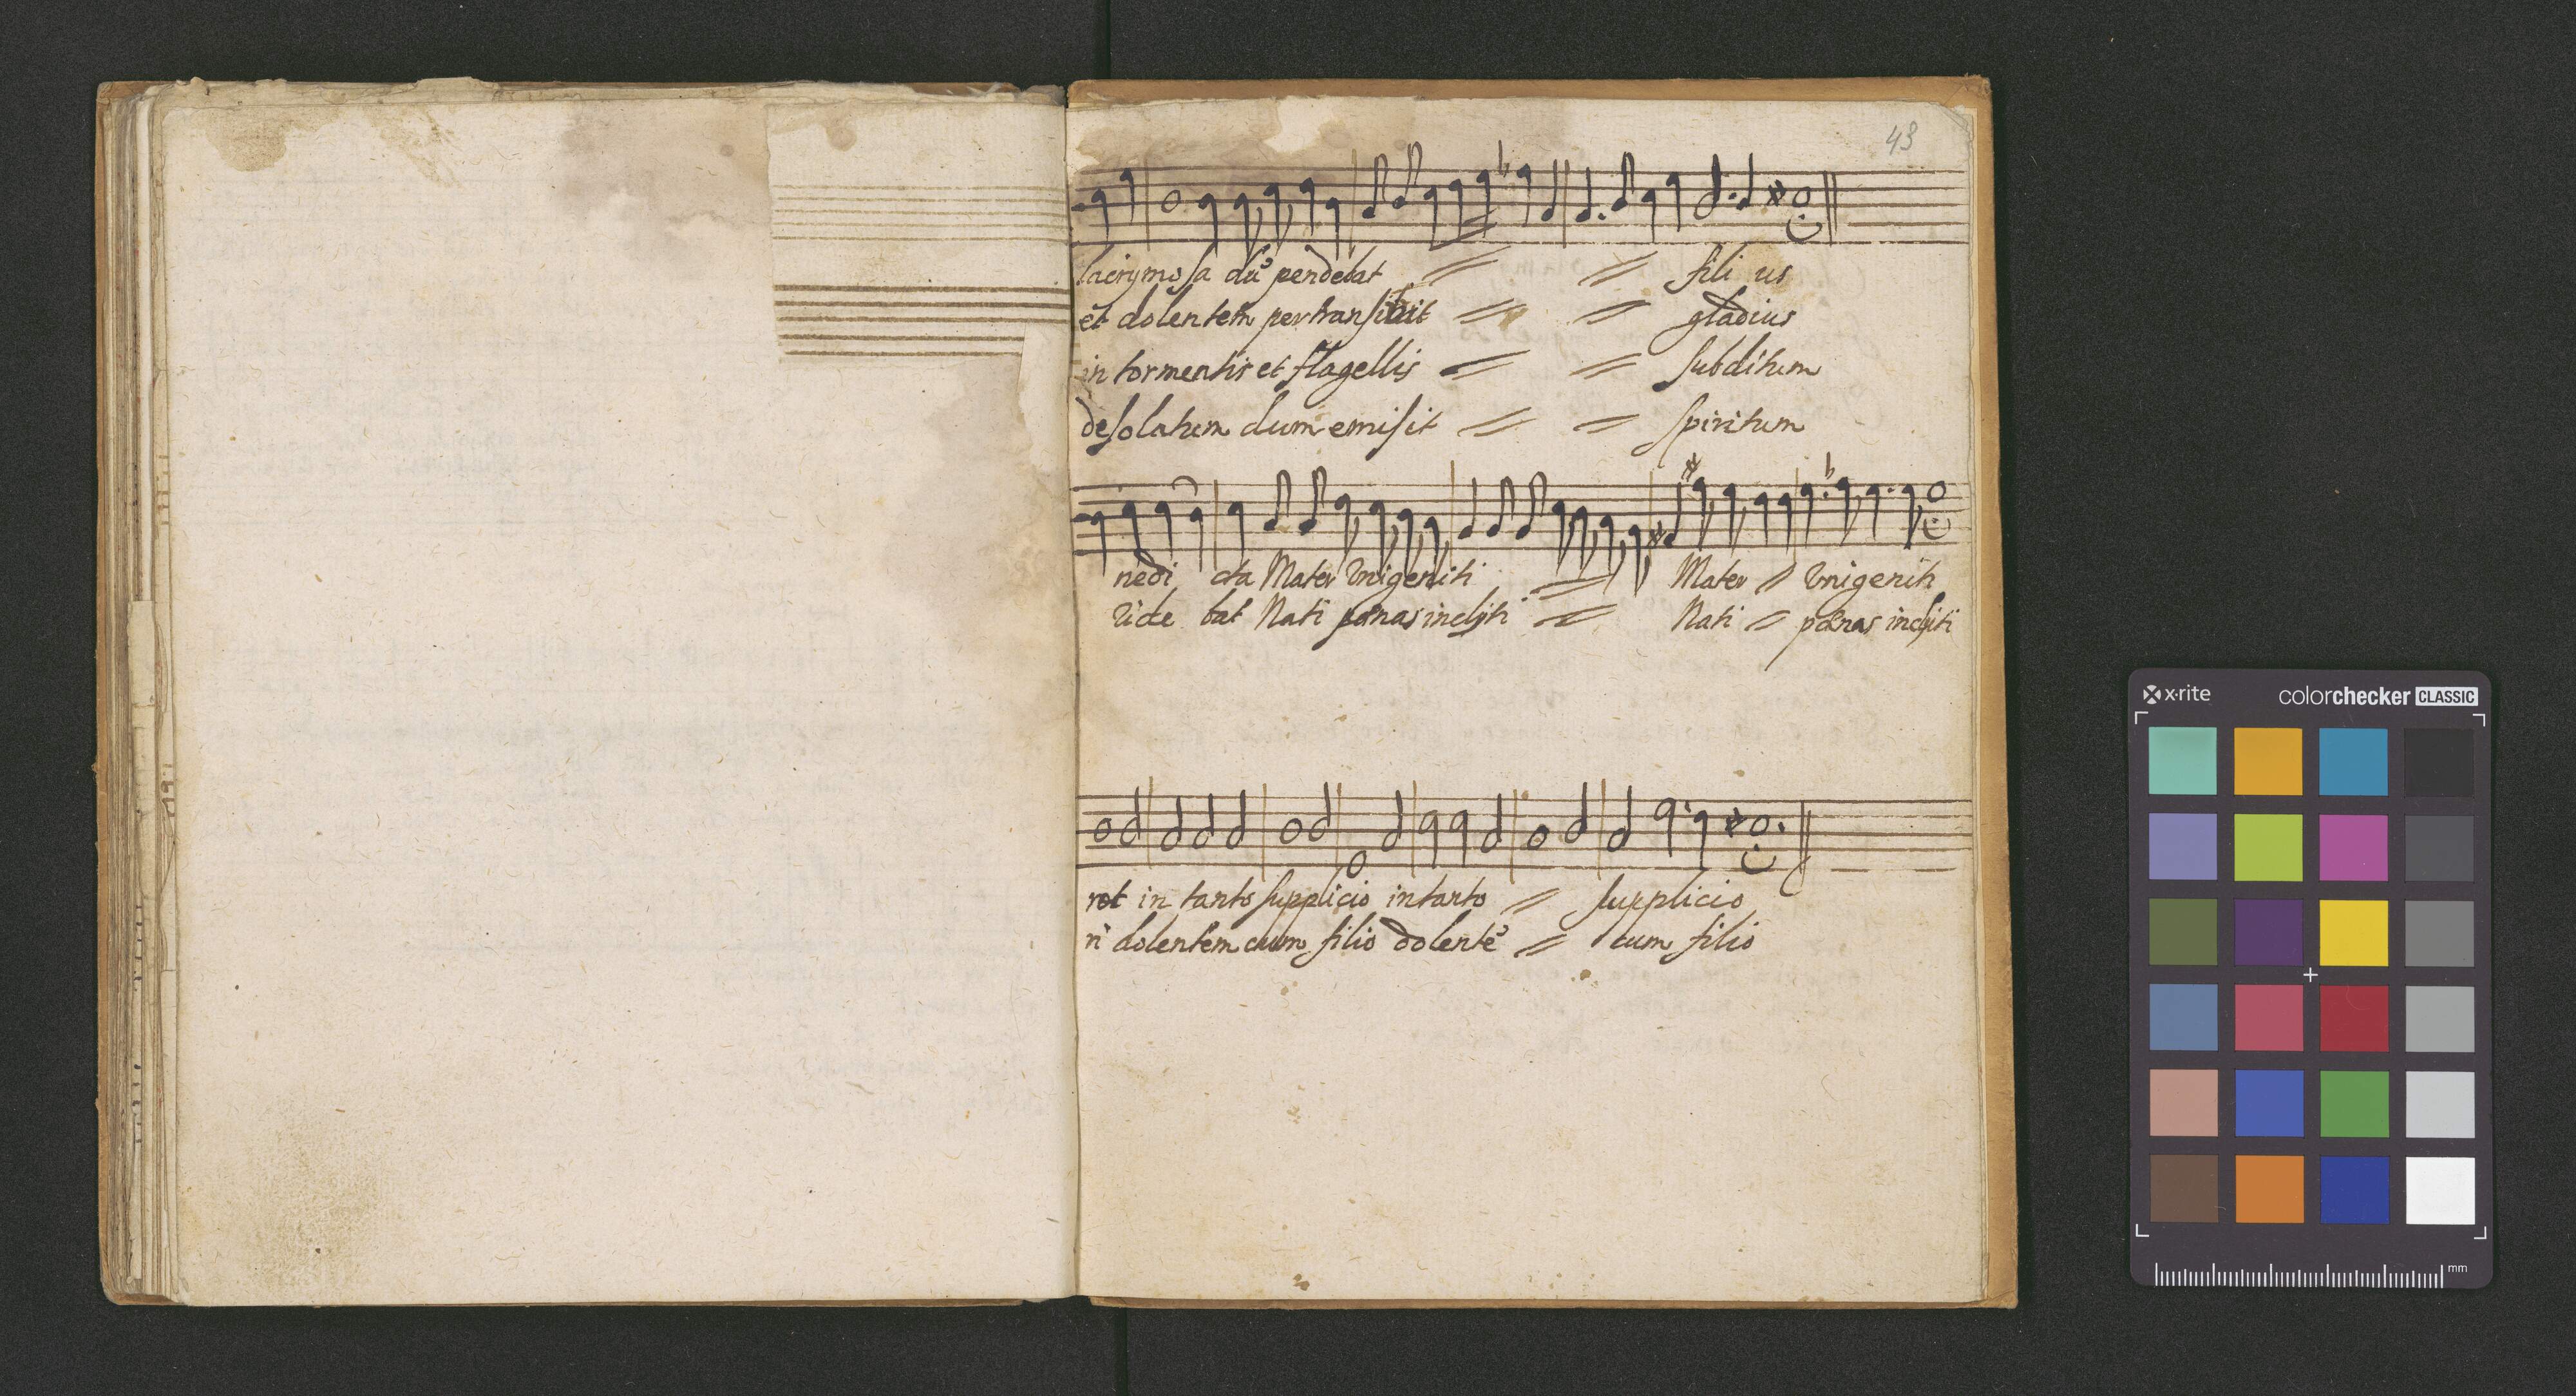 43
lacrymosa dũ pendebat // // fili us
et dolentem pertransibit // // gladius
in tormentis et flagellis // // subditum
desolatum dum emisit // // spiritum
nedi cta Mater Vnigeniti // Mater // Vnigeniti
Vide bat Nati pœnas inclÿti // Nati // pœnas inclÿti
ret in tanto supplicio in tanto // supplicio
ri dolentem cum filio dolentẽ // cum filio
x·rite colorchecker CLASSIC
mm